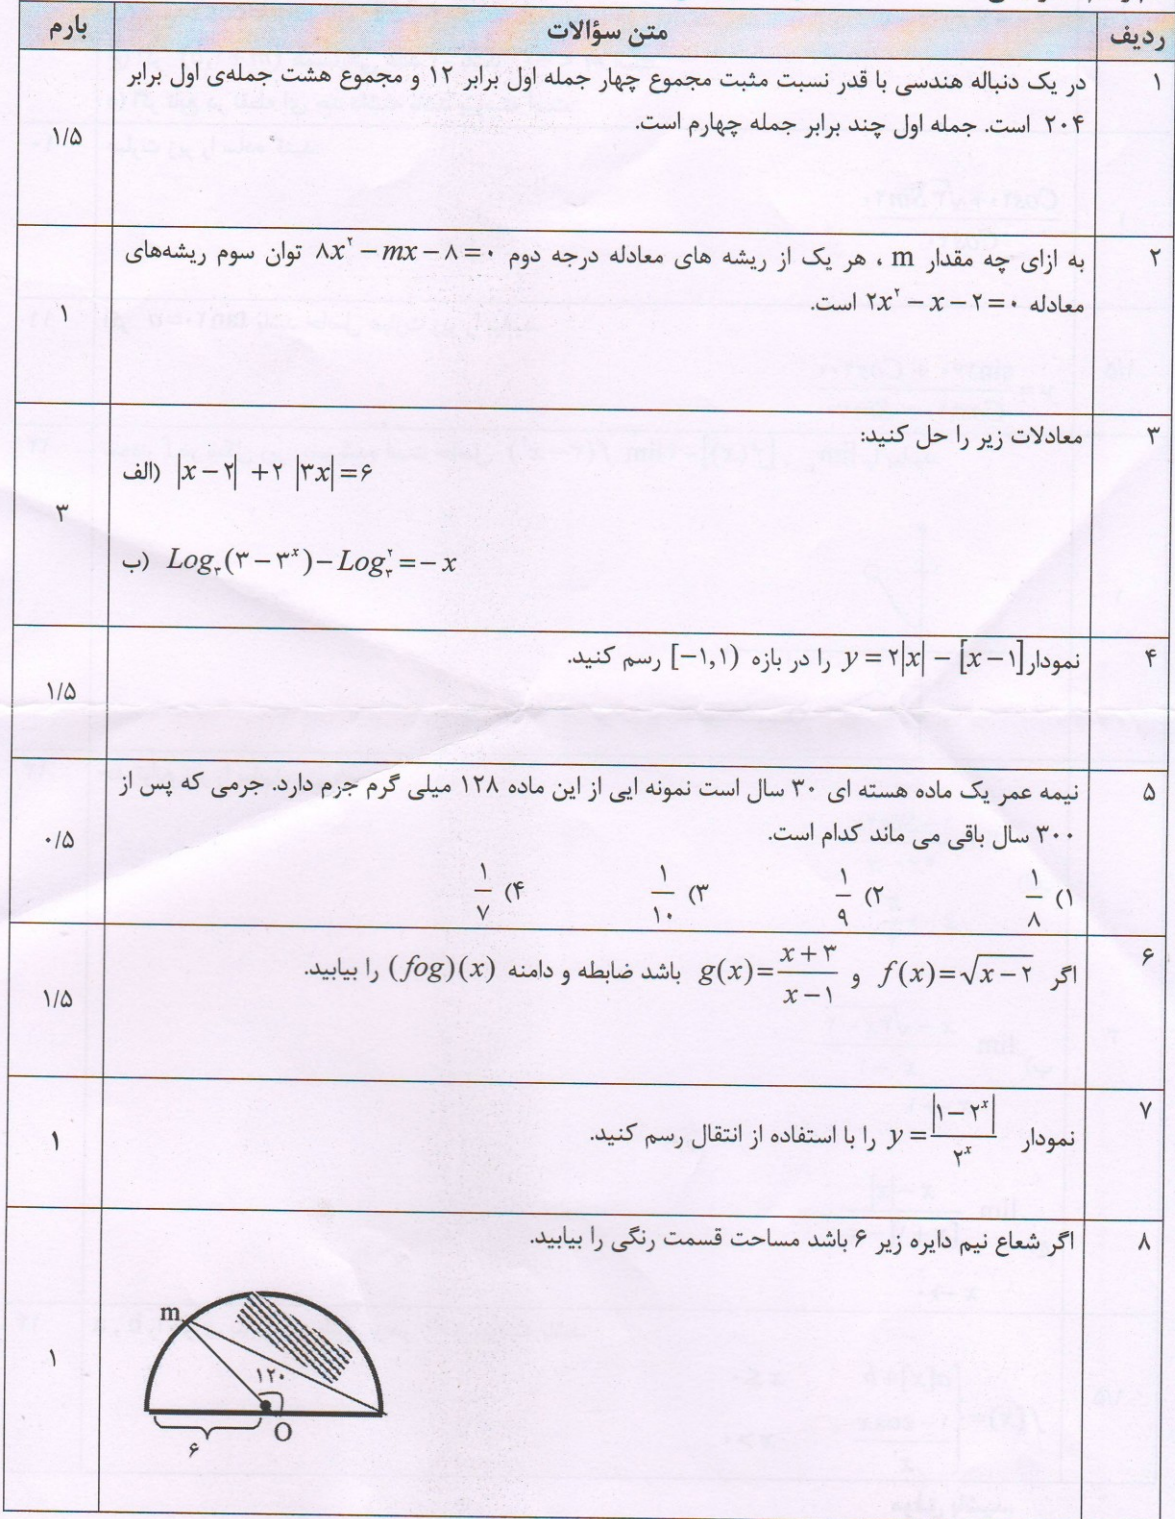 ردیف متن سؤالات بارم
۱ در یک دنباله هندسی با قدر نسبت مثبت مجموع چهار جمله اول برابر ۱۲ و مجموع هشت جمله‌ی اول برابر
۲۰۴ است. جمله اول چند برابر جمله چهارم است.
۱/۵
۲ به ازای چه مقدار m ، هر یک از ریشه های معادله درجه دوم ۸x² − mx − ۸ = ۰ توان سوم ریشه‌های
معادله ۲x² − x − ۲ = ۰ است.
۱
۳ معادلات زیر را حل کنید:
الف) |x − ۲| + ۲ |۳x| = ۶
۳
ب) Log₃(۳ − ۳ˣ) − Log₃² = − x
۴ نمودار y = ۲|x| − [x − ۱] را در بازه [−۱,۱) رسم کنید.
۱/۵
۵ نیمه عمر یک ماده هسته ای ۳۰ سال است نمونه ایی از این ماده ۱۲۸ میلی گرم جرم دارد. جرمی که پس از
۳۰۰ سال باقی می ماند کدام است.
۰/۵
۱) ۱/۸ ۲) ۱/۹ ۳) ۱/۱۰ ۴) ۱/۷
۶ اگر f(x) = √(x − ۲) و g(x) = (x + ۳)/(x − ۱) باشد ضابطه و دامنه (fog)(x) را بیابید.
۱/۵
۷ نمودار y = |۱ − ۲ˣ|/۲ˣ را با استفاده از انتقال رسم کنید.
۱
۸ اگر شعاع نیم دایره زیر ۶ باشد مساحت قسمت رنگی را بیابید.
m
۱۲۰
۱
O
۶